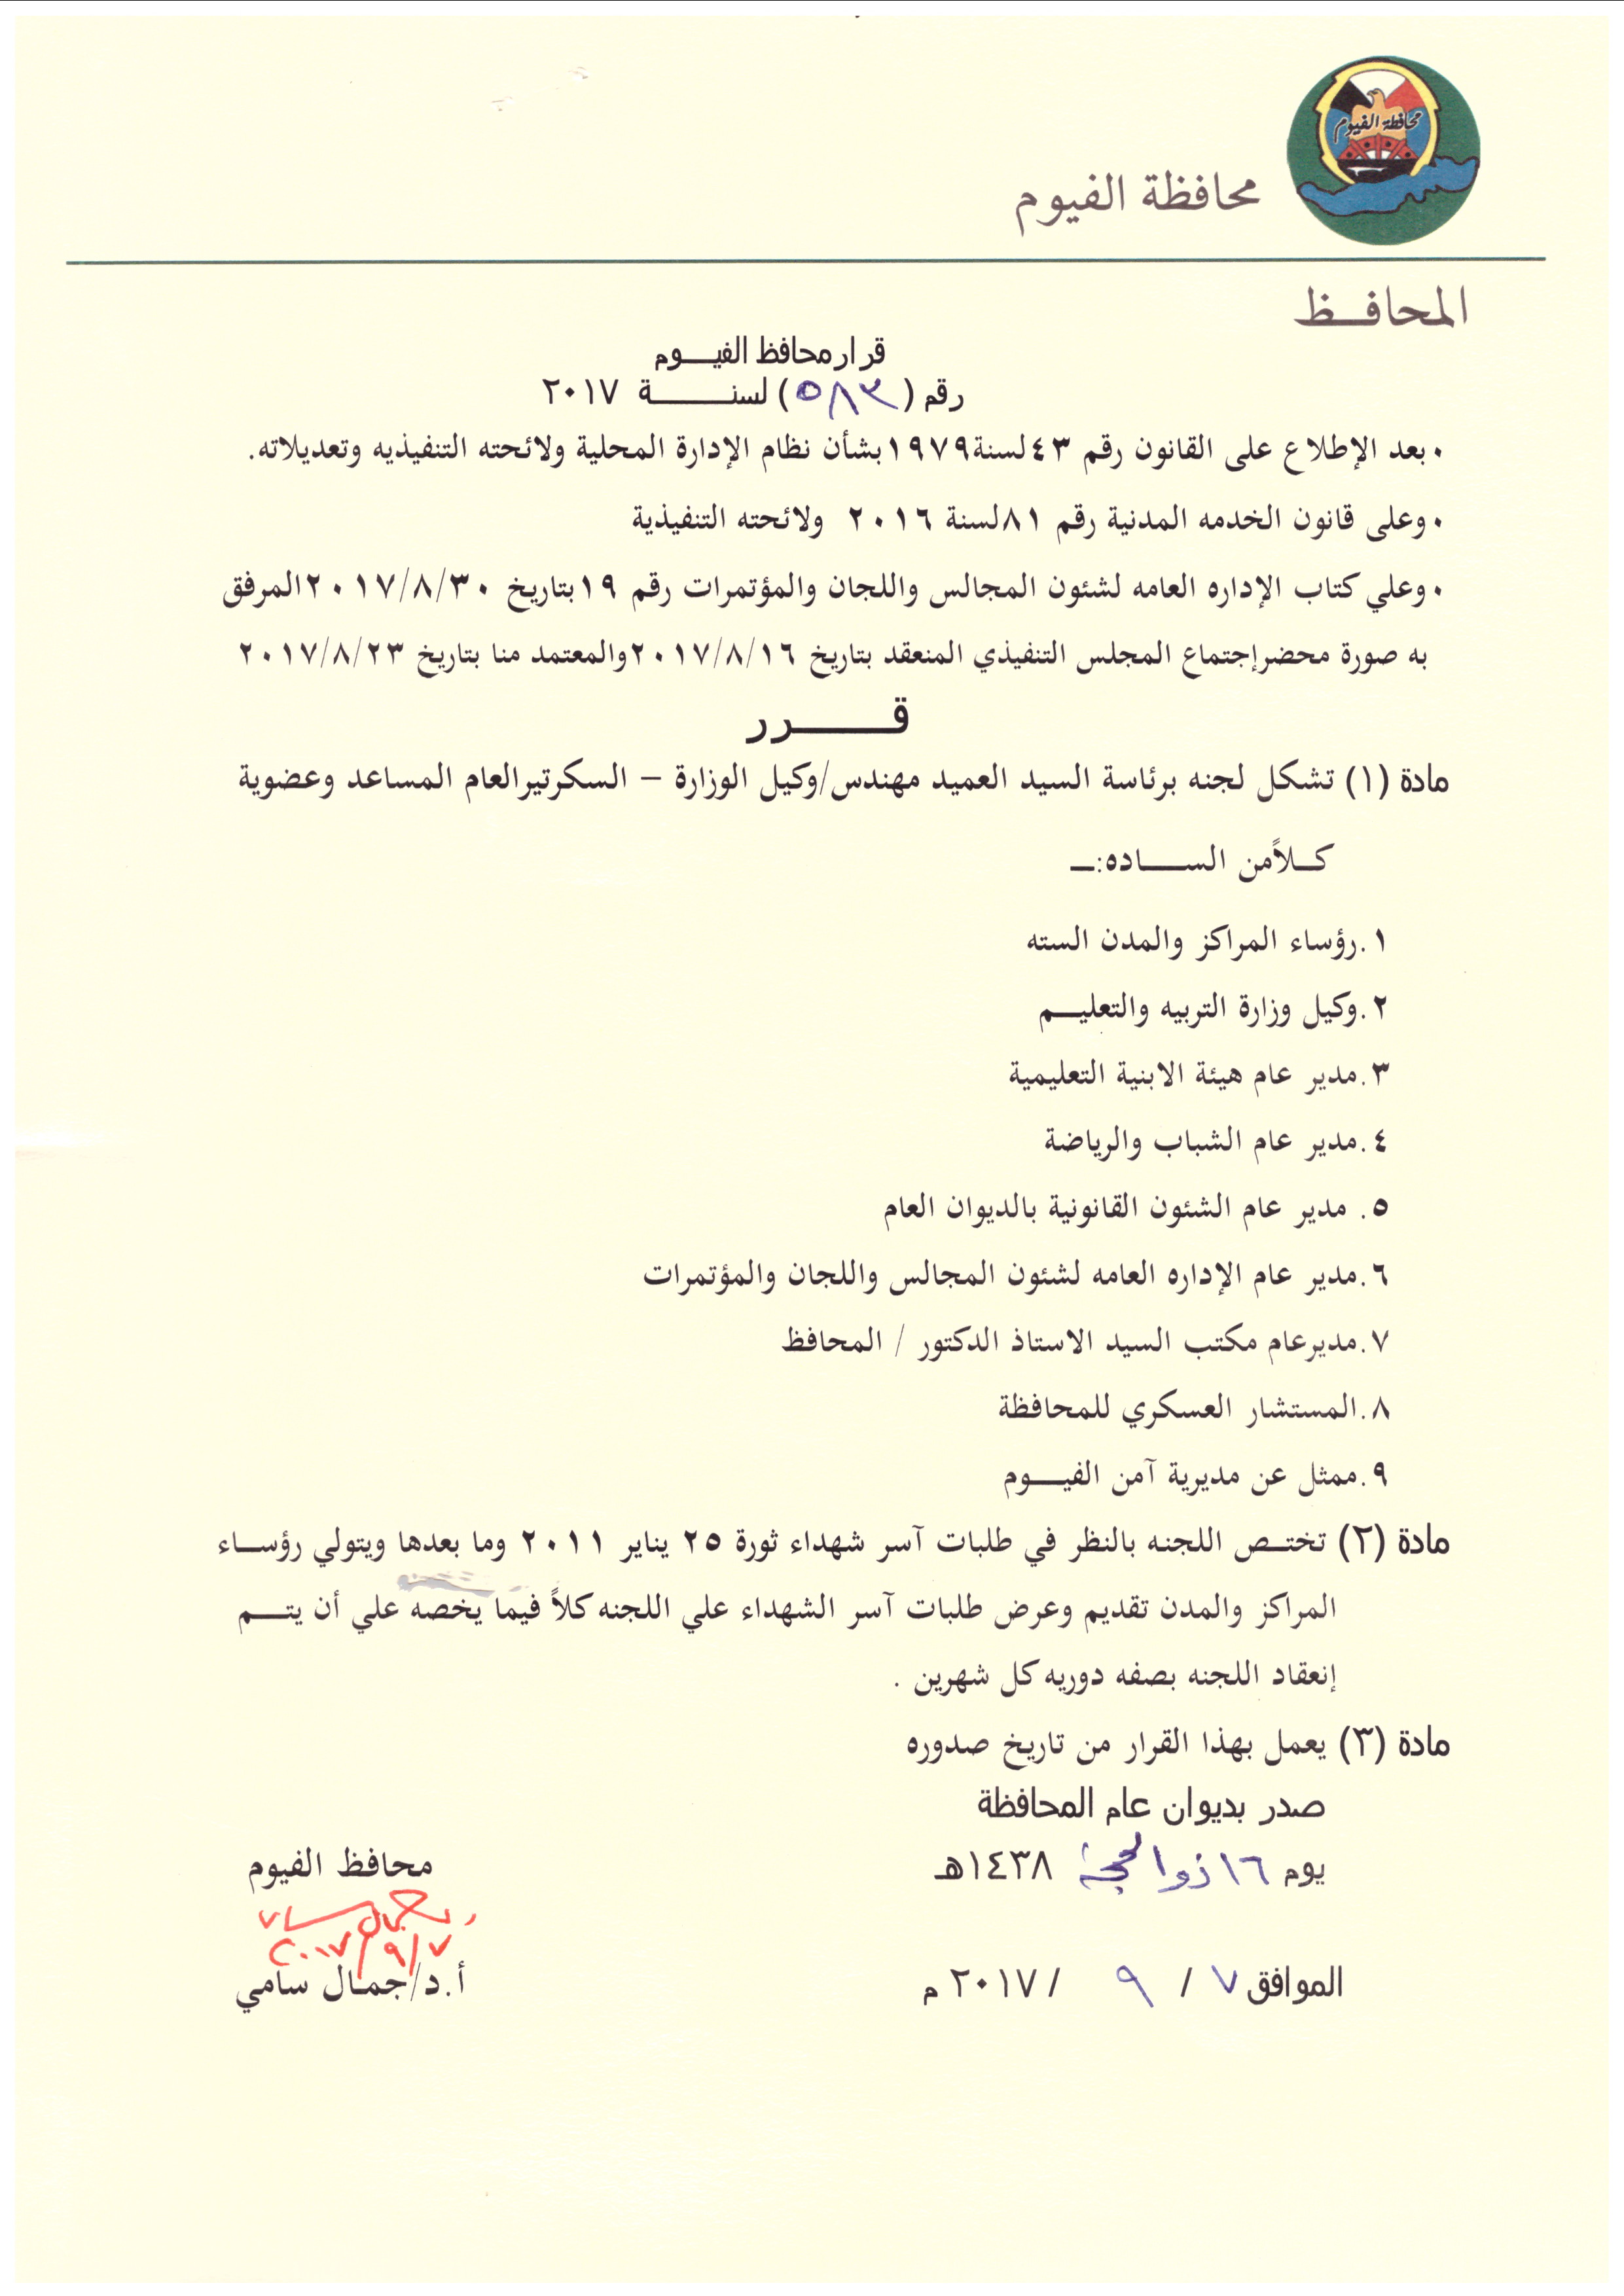 محافظة الفيوم
محافظة الفيوم
المحافــظ
قرار محافظ الفيـــوم
رقم (٥٨٣) لسنـــــــة ٢٠١٧
• بعد الإطلاع على القانون رقم ٤٣ لسنة ١٩٧٩ بشأن نظام الإدارة المحلية ولائحته التنفيذيه وتعديلاته.
• وعلى قانون الخدمه المدنية رقم ٨١ لسنة ٢٠١٦ ولائحته التنفيذية
• وعلي كتاب الإداره العامه لشئون المجالس واللجان والمؤتمرات رقم ١٩ بتاريخ ٢٠١٧/٨/٣٠ المرفق
به صورة محضر إجتماع المجلس التنفيذي المنعقد بتاريخ ٢٠١٧/٨/١٦ والمعتمد منا بتاريخ ٢٠١٧/٨/٢٣
قـــــــرر
مادة (١) تشكل لجنه برئاسة السيد العميد مهندس/وكيل الوزارة – السكرتير العام المساعد وعضوية
كــلاً من الســـــاده:ــ
١.رؤساء المراكز والمدن السته
٢.وكيل وزارة التربيه والتعليـــم
٣.مدير عام هيئة الابنية التعليمية
٤.مدير عام الشباب والرياضة
٥. مدير عام الشئون القانونية بالديوان العام
٦.مدير عام الإداره العامه لشئون المجالس واللجان والمؤتمرات
٧.مدير عام مكتب السيد الاستاذ الدكتور / المحافظ
٨.المستشار العسكري للمحافظة
٩.ممثل عن مديرية آمن الفيـــوم
مادة (٢) تختــص اللجنه بالنظر في طلبات آسر شهداء ثورة ٢٥ يناير ٢٠١١ وما بعدها ويتولي رؤســاء
المراكز والمدن تقديم وعرض طلبات آسر الشهداء علي اللجنه كلاً فيما يخصه علي أن يتـــم
إنعقاد اللجنه بصفه دوريه كل شهرين .
مادة (٣) يعمل بهذا القرار من تاريخ صدوره
صدر بديوان عام المحافظة
يوم ١٦ ذو الحجة ١٤٣٨هـ
الموافق ٧ / ٩ / ٢٠١٧ م
محافظ الفيوم
٢٠١٧/٩/٧
أ.د/جمـال سامي